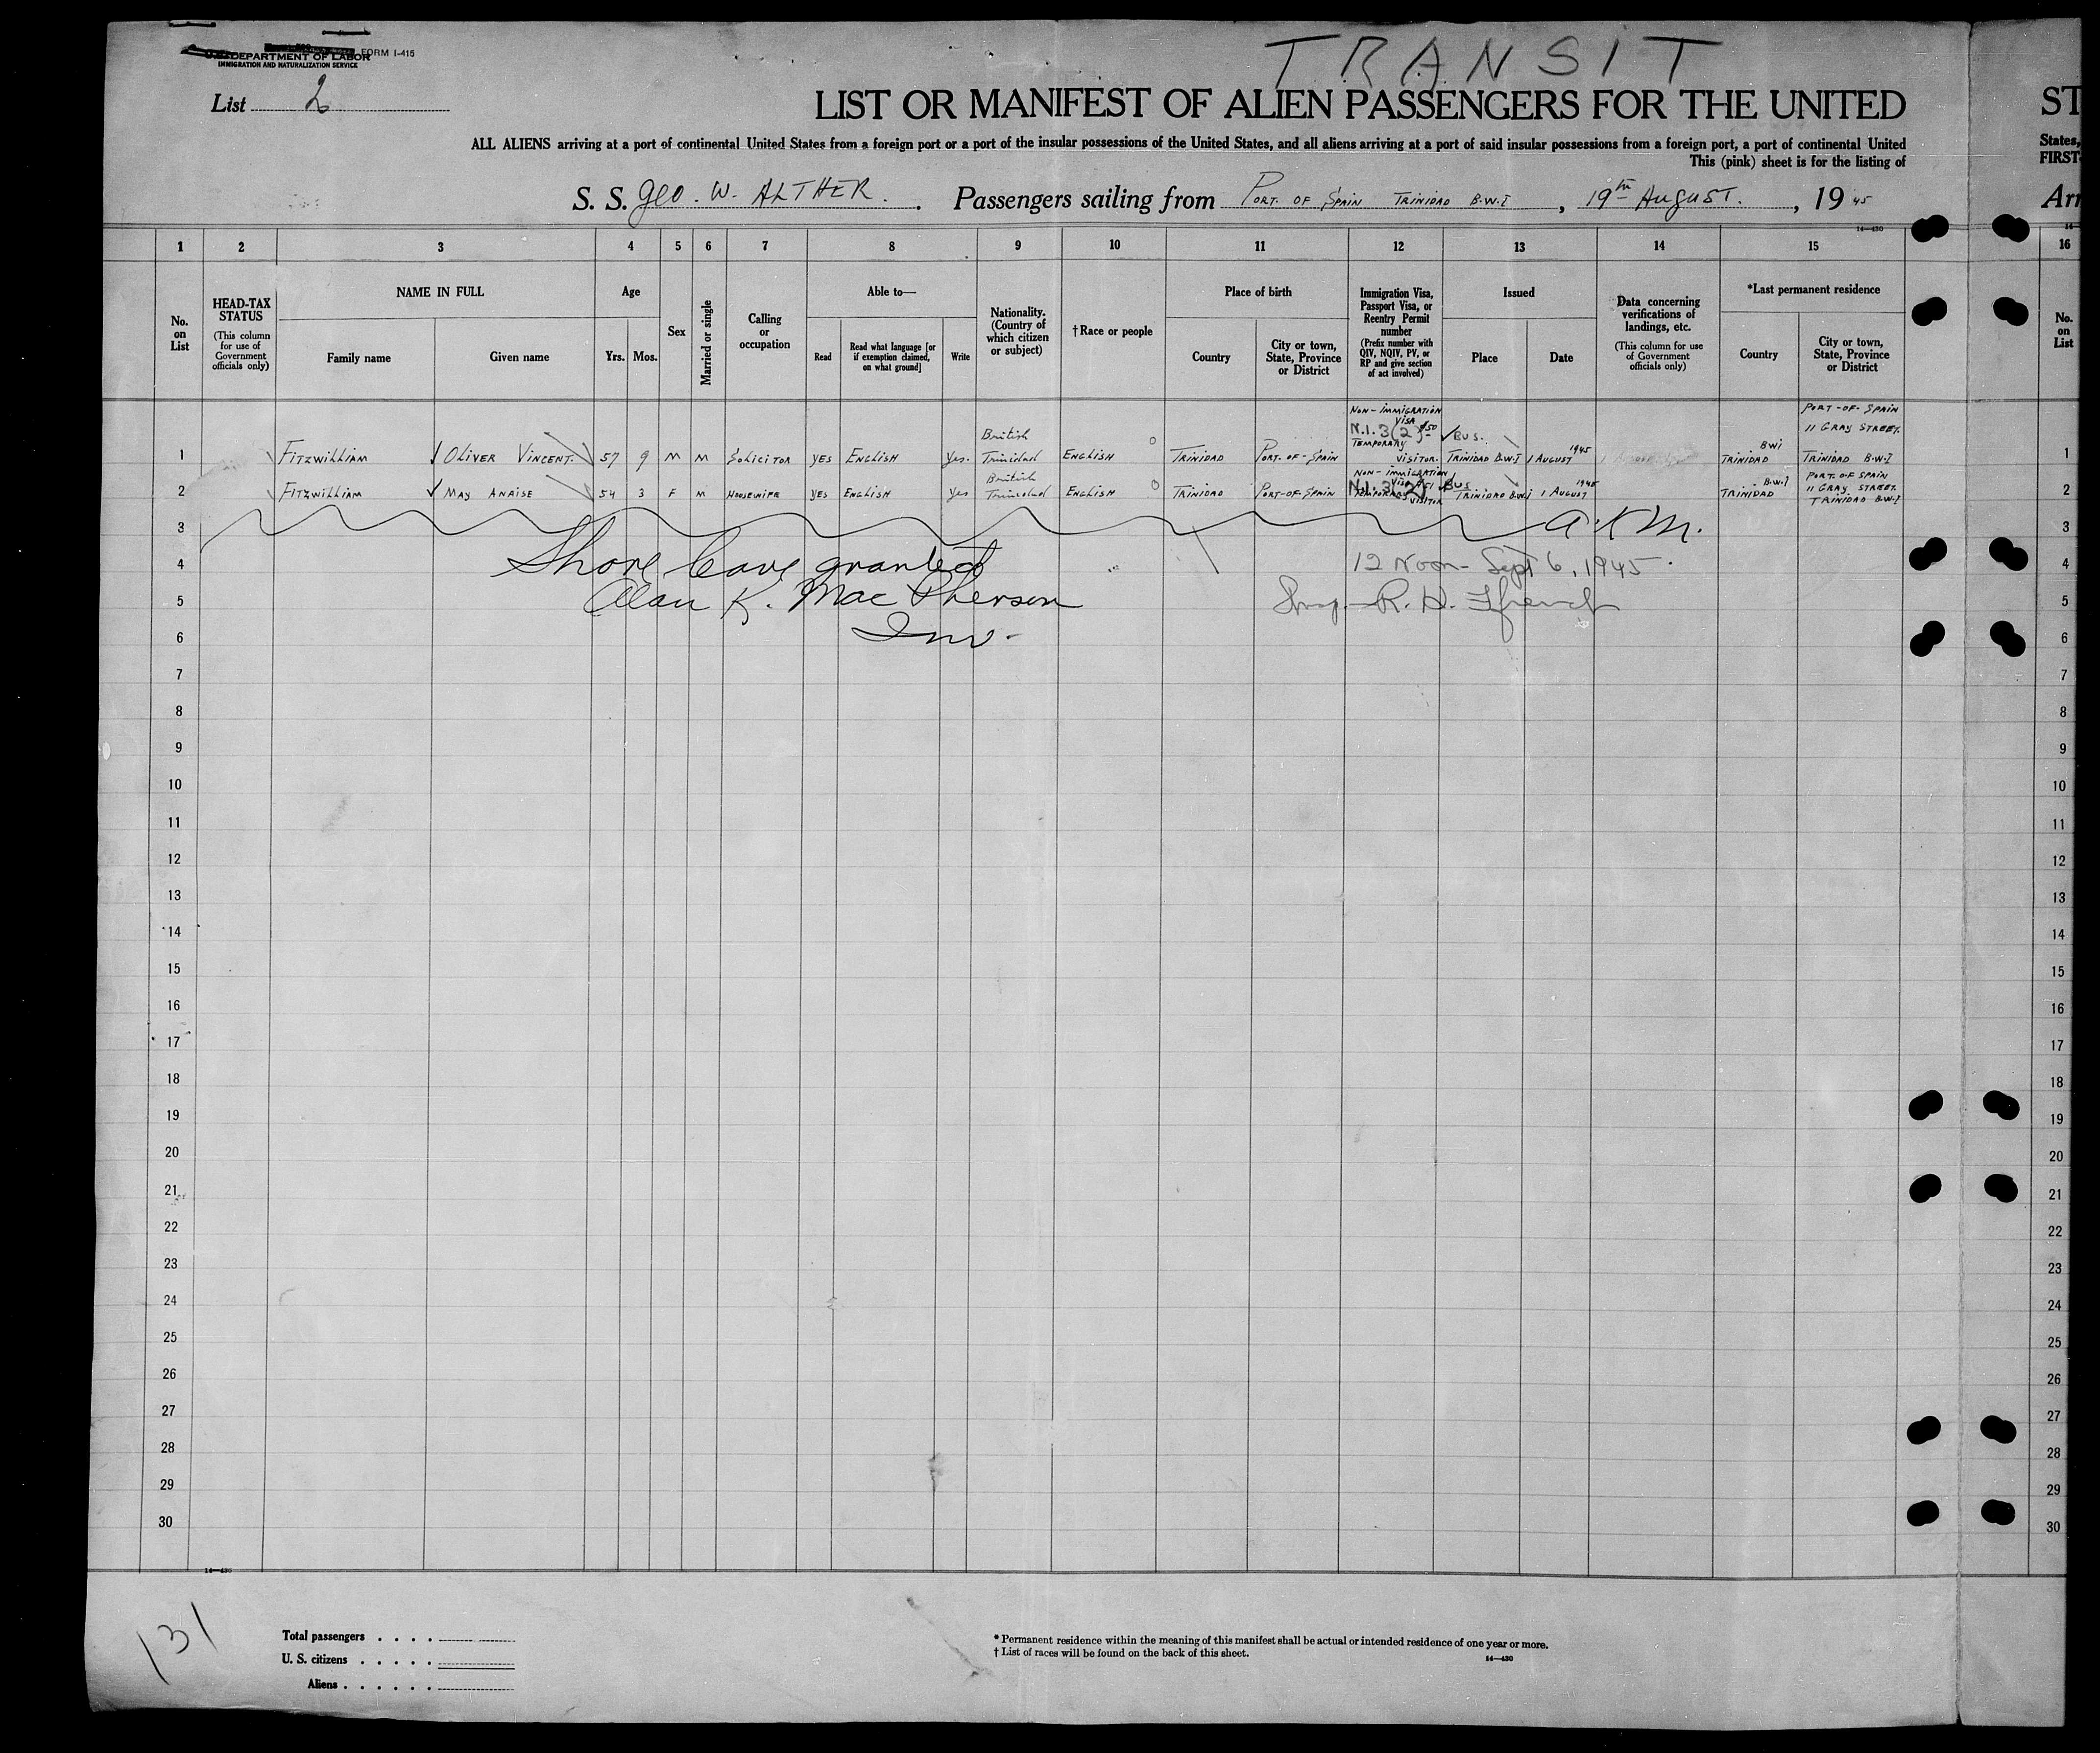 TRANSIT
U.S. DEPARTMENT OF LABOR FORM I-415
IMMIGRATION AND NATURALIZATION SERVICE
List 2
LIST OR MANIFEST OF ALIEN PASSENGERS FOR THE UNITED ST
ALL ALIENS arriving at a port of continental United States from a foreign port or a port of the insular possessions of the United States, and all aliens arriving at a port of said insular possessions from a foreign port, a port of continental United States,
This (pink) sheet is for the listing of FIRST-
S. S. Geo. W. ALTHER. Passengers sailing from PORT. OF SPAIN TRINIDAD B.W.I , 19th AUGUST. , 19 45 Arr
14-430
1 2 3 4 5 6 7 8 9 10 11 12 13 14 15 16
No. on List
HEAD-TAX STATUS
(This column for use of Government officials only)
NAME IN FULL
Family name
Given name
Age
Yrs. Mos.
Sex
Married or single
Calling or occupation
Able to—
Read
Read what language [or if exemption claimed, on what ground]
Write
Nationality. (Country of which citizen or subject)
†Race or people
Place of birth
Country
City or town, State, Province or District
Immigration Visa, Passport Visa, or Reentry Permit number
(Prefix number with QIV, NQIV, PV, or RP and give section of act involved)
Issued
Place
Date
Data concerning verifications of landings, etc.
(This column for use of Government officials only)
*Last permanent residence
Country
City or town, State, Province or District
No. on List
1 FITZWILLIAM OLIVER VINCENT. 57 9 M M SOLICITOR YES ENGLISH Yes. British Trinidad ENGLISH TRINIDAD PORT-OF-SPAIN NON-IMMIGRATION VISA #50 N.I. 3(2) TEMPORARY VISITOR. Bus. TRINIDAD B.W.I 1 AUGUST 1945 TRINIDAD BWI PORT-OF-SPAIN 11 GRAY STREET. TRINIDAD B.W.I 1
2 FITZWILLIAM MAY ANAISE 54 3 F M HOUSEWIFE YES ENGLISH Yes British Trinidad ENGLISH TRINIDAD PORT-OF SPAIN NON-IMMIGRATION VISA #51 N.I. 3(2) TEMPORARY VISITOR Bus TRINIDAD B.W.I 1 AUGUST 1945 TRINIDAD B.W.I PORT. OF SPAIN 11 GRAY STREET. TRINIDAD B.W.I 2
3 A.K.M. 3
4 Shore leave granted 12 Noon - Sept 6, 1945. 4
5 Alan K. MacPherson Insp. R. H. 5
6 Inv. 6
7 7
8 8
9 9
10 10
11 11
12 12
13 13
14 14
15 15
16 16
17 17
18 18
19 19
20 20
21 21
22 22
23 23
24 24
25 25
26 26
27 27
28 28
29 29
30 30
14-430
131
Total passengers . . . .
U. S. citizens . . . . .
Aliens . . . . . .
* Permanent residence within the meaning of this manifest shall be actual or intended residence of one year or more.
† List of races will be found on the back of this sheet.
14-430